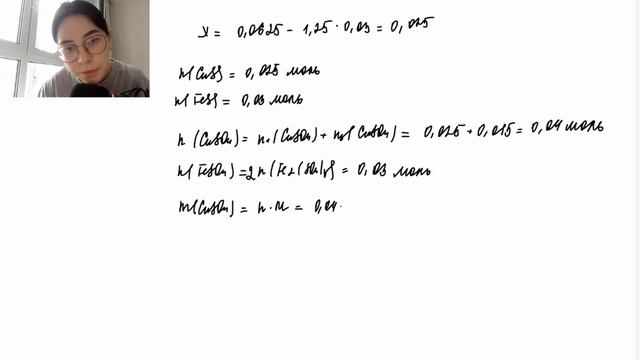 x = 0,0625 - 1,25 · 0,03 = 0,025
n(CuS) = 0,025 моль
n(FeS) = 0,03 моль
n(CuSO₄) = n₁(CuSO₄) + n₂(CuSO₄) = 0,025 + 0,015 = 0,04 моль
n(FeSO₄) = 2n(Fe₂(SO₄)₃) = 0,03 моль
m(CuSO₄) = n · M = 0,04 ·